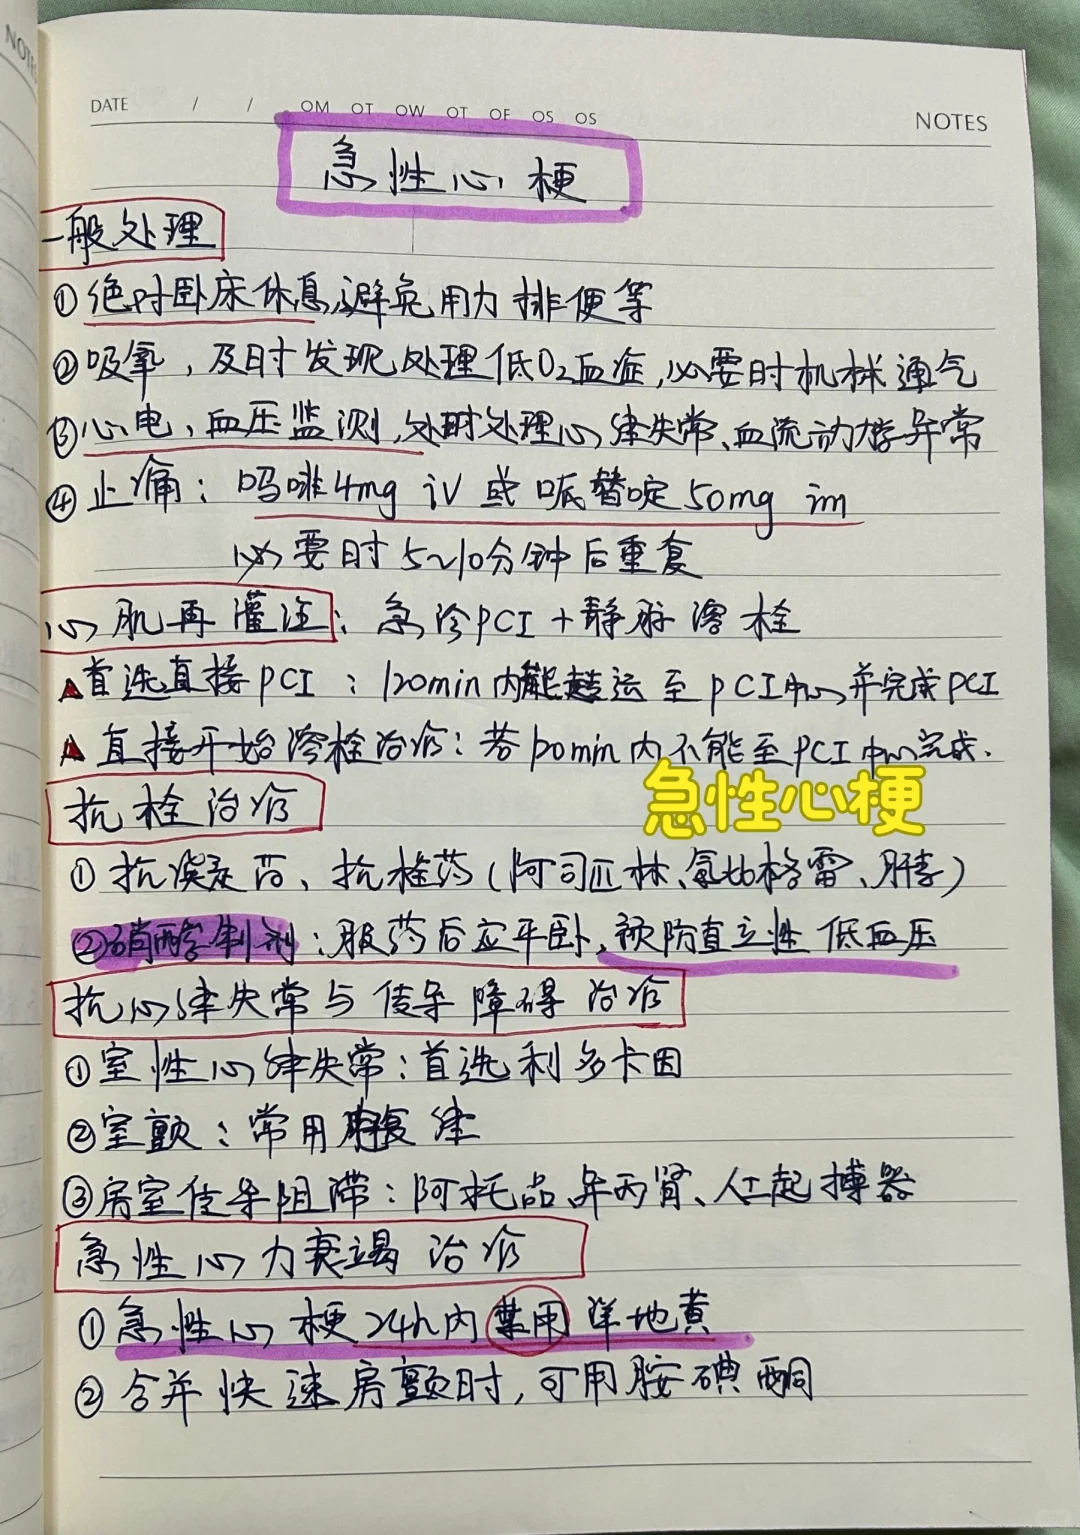 NOTES
DATE / / OM OT OW OT OF OS OS
NOTES
急性心梗
一般处理
①绝对卧床休息,避免用力排便等
②吸氧,及时发现,处理低O₂血症,必要时机械通气
③心电、血压监测,处理心律失常、血流动力学异常
④止痛:吗啡4mg iv 或哌替啶50mg im
必要时5~10分钟后重复
心肌再灌注:急诊PCI+静脉溶栓
▲首选直接PCI:120min内能转运至PCI中心并完成PCI
▲直接开始溶栓治疗:若120min内不能至PCI中心完成.
急性心梗
抗栓治疗
①抗凝药、抗栓药(阿司匹林、氯吡格雷、肝素)
②硝酸制剂:服药后应平卧,预防直立性低血压
抗心律失常与传导障碍治疗
①室性心律失常:首选利多卡因
②室颤:常用 复律
③房室传导阻滞:阿托品、异丙肾、人工起搏器
急性心力衰竭治疗
①急性心梗24h内禁用洋地黄
②合并快速房颤时,可用胺碘酮